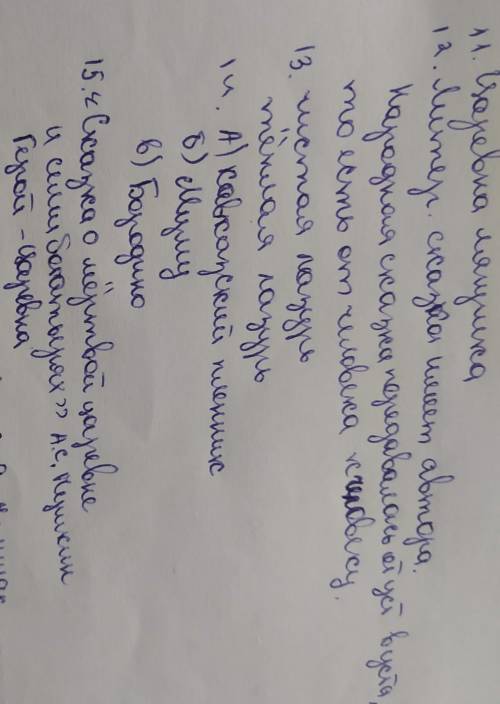 11. Царевна лягушка
12. Литер. сказка имеет автора.
Народная сказка передавалась от уст в уста,
то есть от человека к человеку.
13. чистая лазурь
тёплая лазурь
14. А) Кавказский пленник
б) Муму
в) Бородино
15. «Сказка о мёртвой царевне
и семи богатырях» А.С. Пушкин
Герой - Царевна